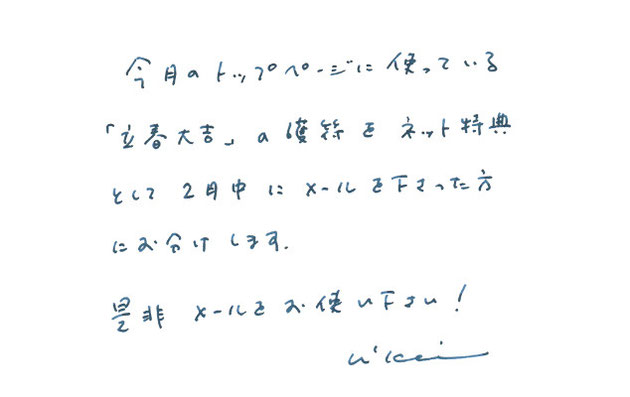 今月のトップページに使っている
「立春大吉」の護符をネット特典
として2月中にメールを下さった方
にお分けします.
是非メールをお使い下さい!